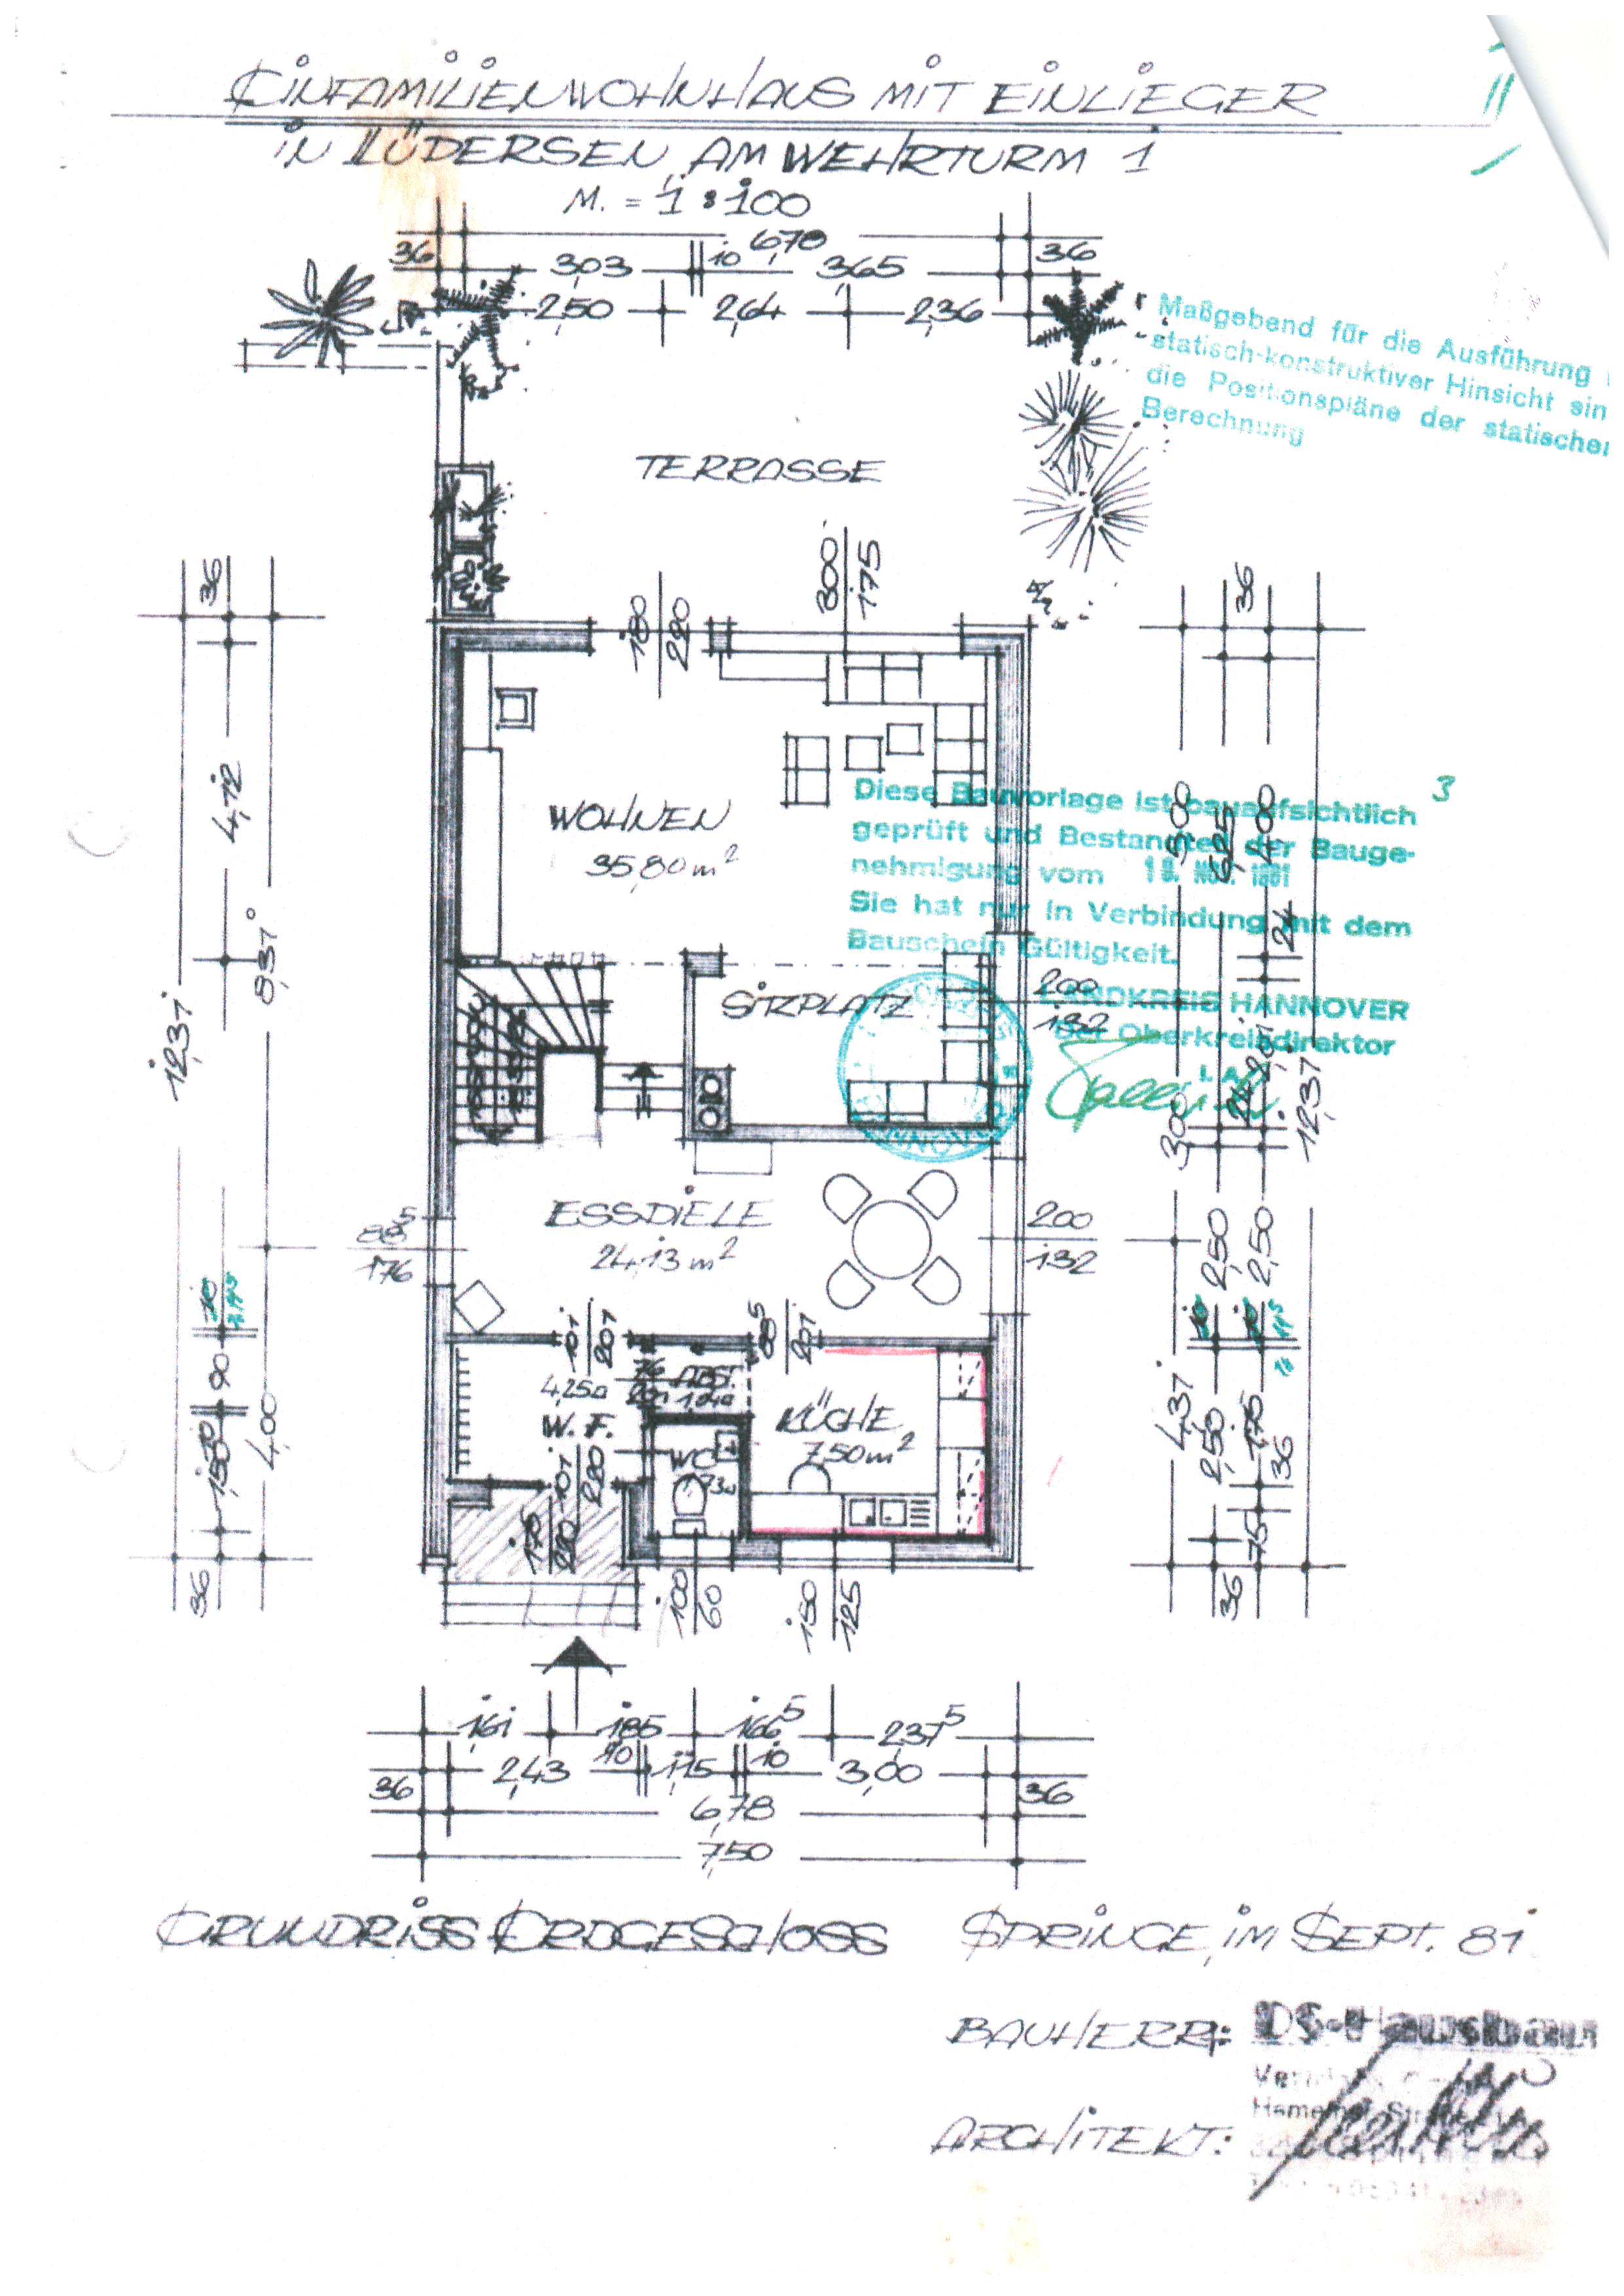 EINFAMILIENWOHNHAUS MIT EINLIEGER
IN LÜDERSEN, AM WEHRTURM 1
M. = 1:100
6,78
36 3,03 10 3,65 36
2,50 2,64 2,36
Maßgebend für die Ausführung
statisch-konstruktiver Hinsicht sin
die Positionspläne der statischen
Berechnung
TERRASSE
300
175
180
220
36
4,12
8,37
12,37
36
WOHNEN
35,80 m²
Diese Bauvorlage ist bauaufsichtlich
geprüft und Bestandteil der Bauge-
nehmigung vom
Sie hat nur in Verbindung mit dem
Bauschein Gültigkeit.
LANDKREIS HANNOVER
Der Oberkreisdirektor
I. A.
3
SITZPLATZ
200
132
4,00
24
300
12,37
ESSDIELE
24,13 m²
88⁵
176
200
132
2,50
2,50
101
201
88⁵
201
76
201
ABST.
4,25
W. F.
101
220
WC
KÜCHE
7,50 m²
176
220
90
1,50
4,00
36
4,37
2,50
1,75
36
75
36
100
60
150
125
1,61 1,85 1,66⁵ 2,37⁵
36 2,43 10 1,15 10 3,00 36
6,78
7,50
GRUNDRISS ERDGESCHOSS SPRINGE, IM SEPT. 81
BAUHERR: DS-Hausbau
ARCHITEKT: